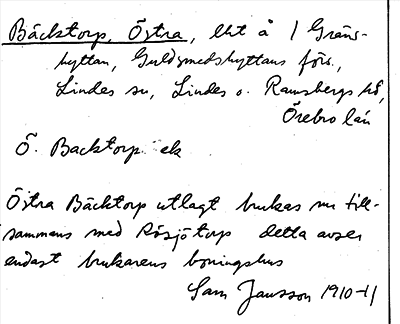 Bäcktorp, Östra, lht å 1 Gräns-
hyttan, Guldsmedshyttans förs.,
Lindes sn, Lindes o. Ramsbergs hd,
Örebro län
Ö. Backtorp ek
Östra Bäcktorp utlagt brukas nu till-
sammans med Rösjötorp detta avser
endast brukarens boningshus
Sam Jansson 1910-11